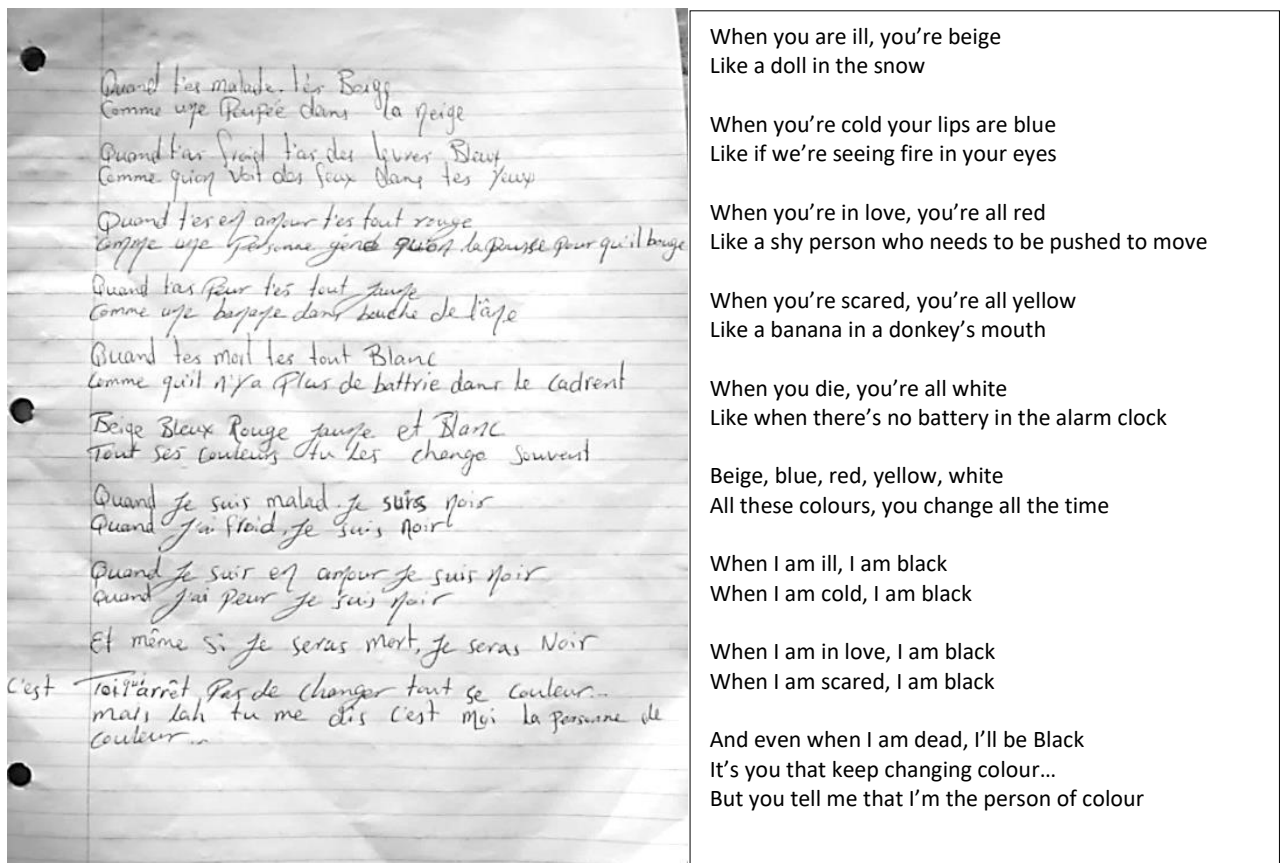 Quand t'es malade. t'es Beige
Comme une Poupée dans la neige
Quand t'as froid t'as des levres Bleux
Comme qu'on voit des feux dans tes yeux
Quand t'es en amour t'es tout rouge
Comme une Personne gené qu'on la pousse pour qu'il bouge
Quand t'as Peur t'es tout jaune
Comme une banane dans bouche de l'âne
Quand tes mort tes tout Blanc
Comme qu'il n'ya Plus de battrie dans le cadrent
Beige Bleux Rouge jaune et Blanc
Tout ses couleurs tu les change souvent
Quand je suis malad. je suis noir
Quand J'ai froid, je suis noir
Quand Je suis en amour je suis noir
Quand J'ai peur je suis noir
Et même si je seras mort, je seras Noir
C'est Toi qui arrêt Pas de changer tout se couleur...
mais lah tu me dis c'est moi la personne de
couleur...
When you are ill, you're beige
Like a doll in the snow
When you're cold your lips are blue
Like if we're seeing fire in your eyes
When you're in love, you're all red
Like a shy person who needs to be pushed to move
When you're scared, you're all yellow
Like a banana in a donkey's mouth
When you die, you're all white
Like when there's no battery in the alarm clock
Beige, blue, red, yellow, white
All these colours, you change all the time
When I am ill, I am black
When I am cold, I am black
When I am in love, I am black
When I am scared, I am black
And even when I am dead, I'll be Black
It's you that keep changing colour…
But you tell me that I'm the person of colour